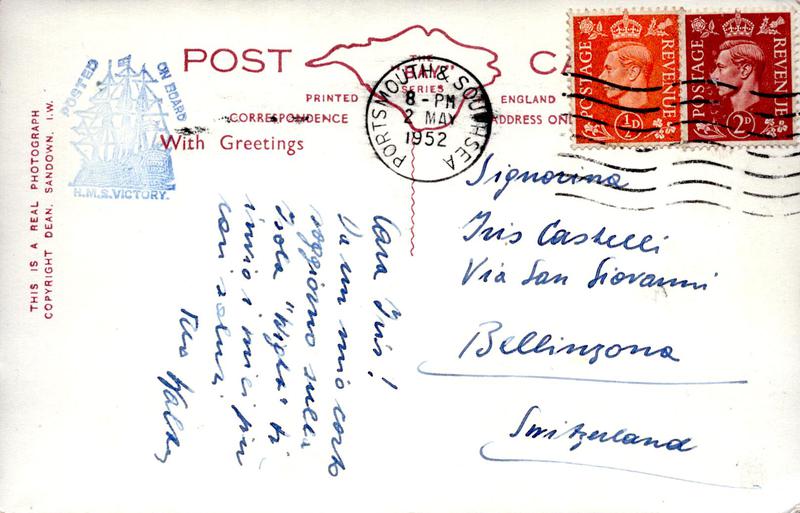 POST CA
THE
"LEAVI"
SERIES
PRINTED ENGLAND
CORRESPONDENCE ADDRESS ONL
With Greetings
POSTED ON BOARD
H.M.S. VICTORY.
THIS IS A REAL PHOTOGRAPH
COPYRIGHT DEAN. SANDOWN. I.W.
PORTSMOUTH & SOUTHSEA
8 - PM
2 MAY
1952
POSTAGE REVENUE
½D
POSTAGE REVENUE
2D
Cara Iris!
Da un mio corto
soggiorno sulla
Isola "Wight" ti
invio i miei più
cari saluti.
Signorina
Iris Castelli
Via San Giovanni
Bellinzona
Switzerland